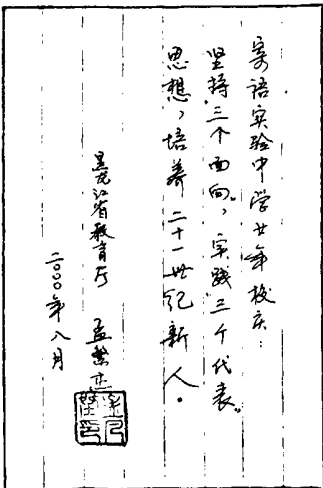 寄语实验中学廿年校庆：
坚持“三个面向”，实践“三个代表”
思想，培养二十一世纪新人。
黑龙江省教育厅 孟繁杰
二〇〇〇年八月